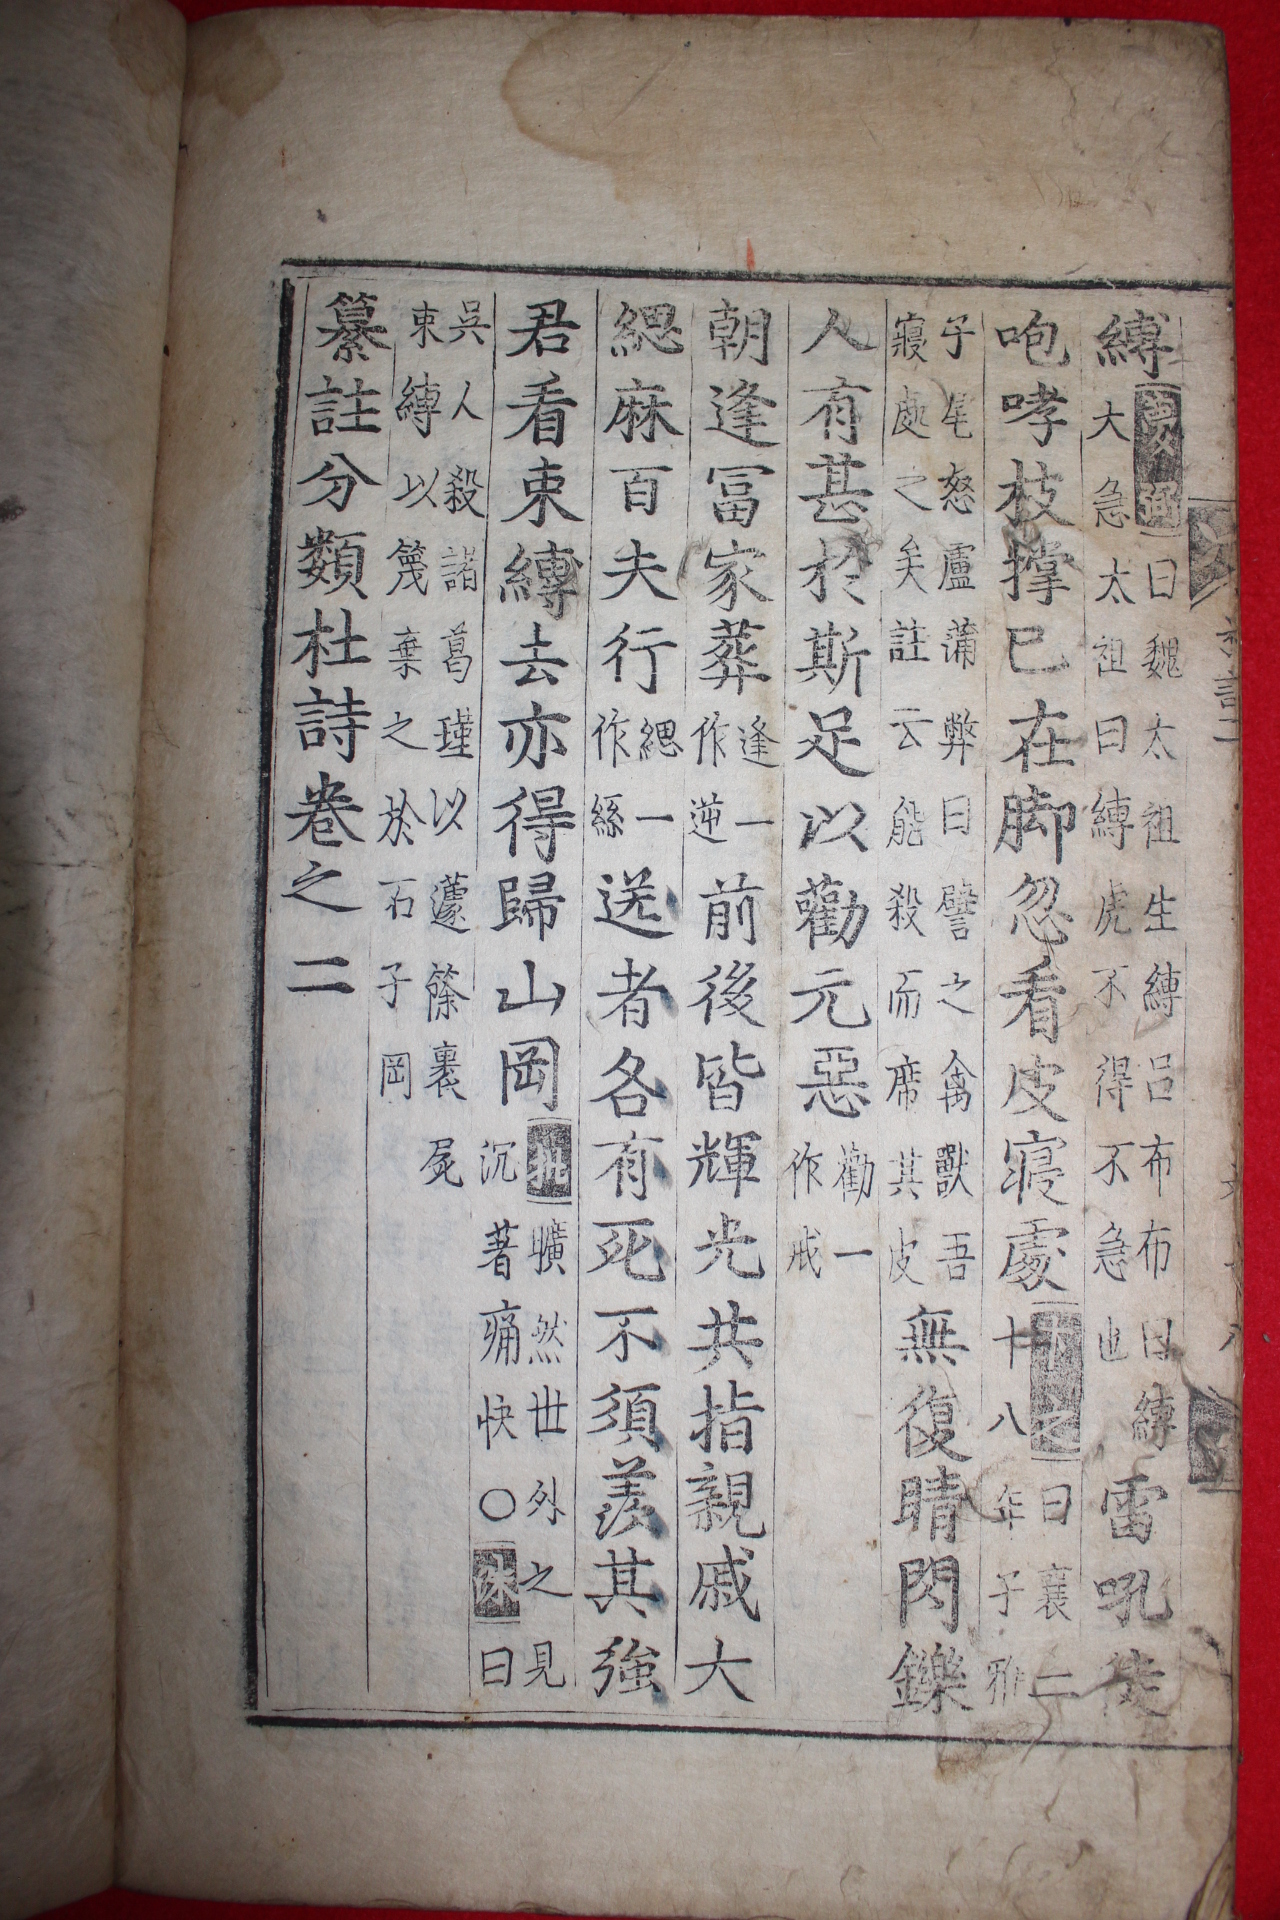 縛曰魏太祖生縛呂布布曰縛
大急太祖曰縛虎不得不急也雷吼徒
咆哮枝撑已在脚忽看皮寢處曰襄二
十八年子雅
子尾怒盧蒲弊曰譬之禽獸吾
寢處之矣註云能殺而席其皮無復睛閃鑠
人有甚於斯足以勸元惡勸一作戒
朝逢冨家葬逢一作逆前後皆輝光共指親戚大
緦麻百夫行緦一作絲送者各有死不須羨其強
君看束縛去亦得歸山岡批曠然世外之見
沉著痛快○洙曰
吳人殺諸葛瑾以蘧篨裹屍
束縛以篾棄之於石子岡
纂註分類杜詩卷之二